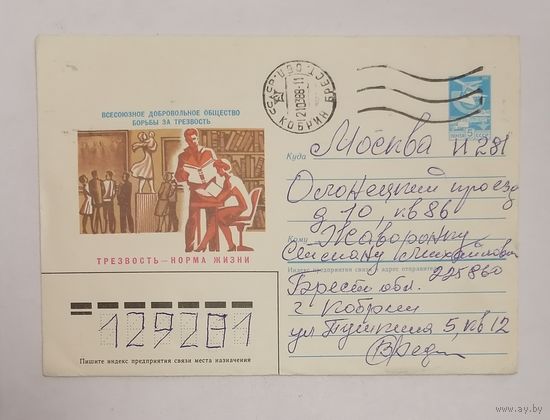 ВСЕСОЮЗНОЕ ДОБРОВОЛЬНОЕ ОБЩЕСТВО
БОРЬБЫ ЗА ТРЕЗВОСТЬ
ТРЕЗВОСТЬ — НОРМА ЖИЗНИ
СССР БРЕСТ. ОБЛ.
КОБРИН
ПОЧТА СССР 5
Куда Москва И 281
Олонецкий проезд
д 10, кв 86
Кому Жаворонку
Михайлович
Индекс предприятия связи и адрес отправителя
225860
Брест обл.
г Кобрин
ул Пушкина 5, кв 12
129281
Пишите индекс предприятия связи места назначения
www.ay.by